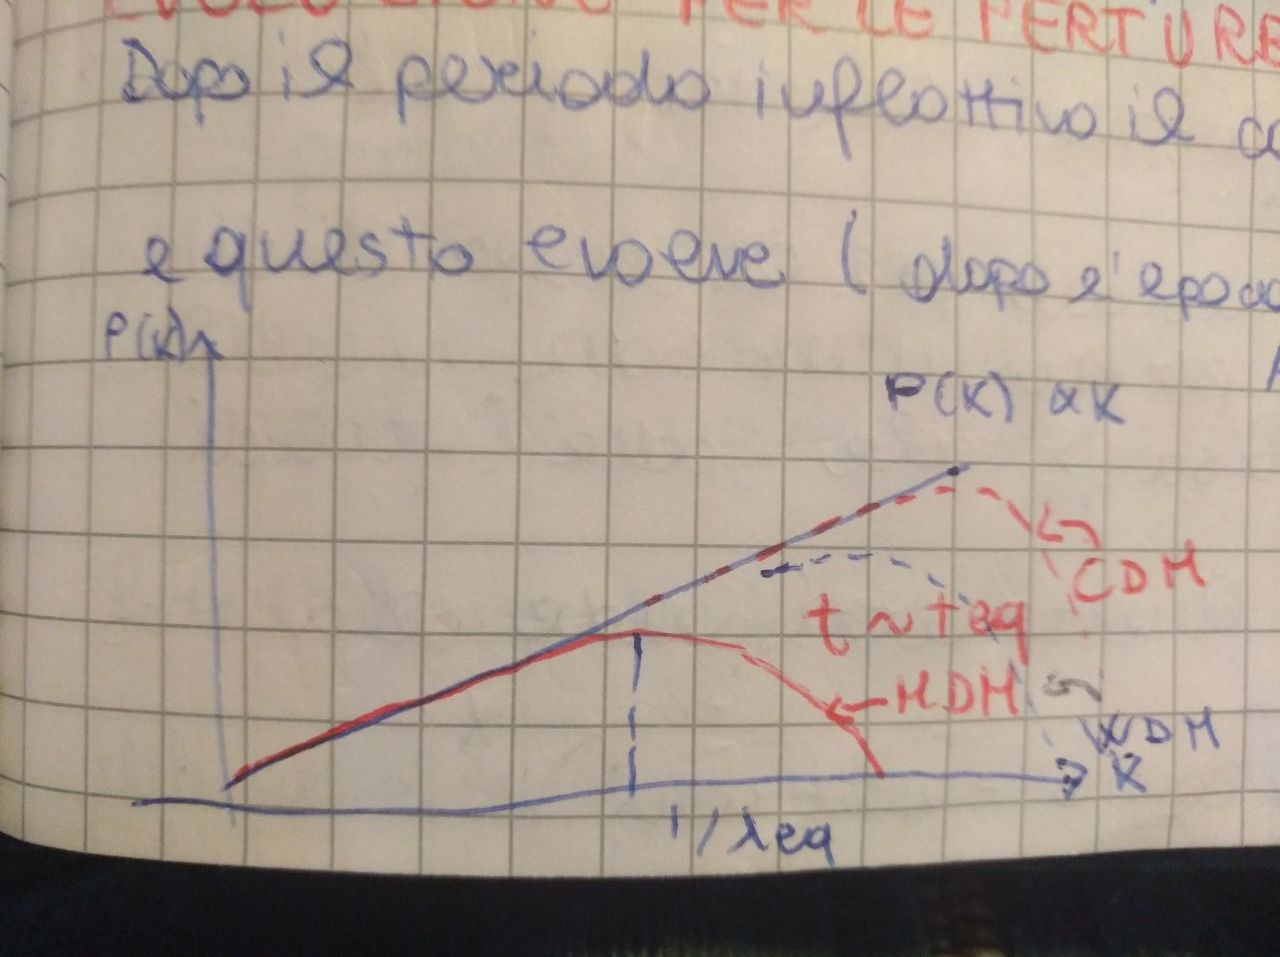 PER LE PERTURB
Dopo il periodo inflattivo il
e questo evolve ( dopo l'epoca
P(K)
P(K) ∝ K
CDM
t ~ teq
HDM
WDM
K
1/λeq